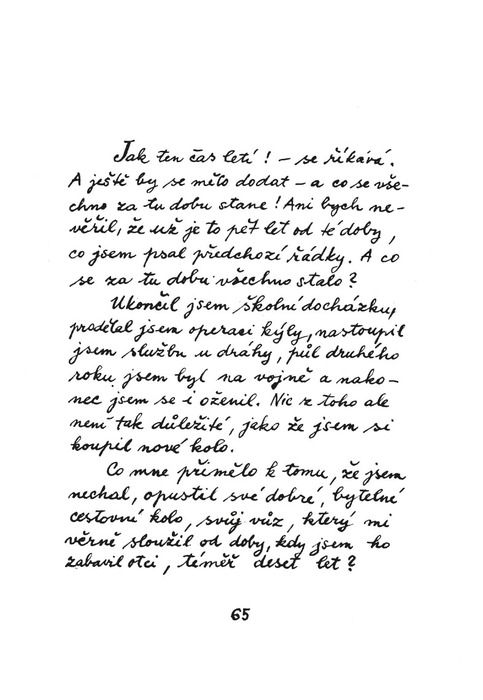 Jak ten čas letí! – se říkává.
A ještě by se mělo dodat – a co se vše-
chno za tu dobu stane! Ani bych ne-
věřil, že už je to pět let od té doby,
co jsem psal předchozí řádky. A co
se za tu dobu všechno stalo?
Ukončil jsem školní docházku,
prodělal jsem operaci kýly, nastoupil
jsem službu u dráhy, půl druhého
roku jsem byl na vojně a nako-
nec jsem se i oženil. Nic z toho ale
není tak důležité, jako že jsem si
koupil nové kolo.
Co mne přimělo k tomu, že jsem
nechal, opustil své dobré, bytelné
cestovní kolo, svůj vůz, který mi
věrně sloužil od doby, kdy jsem ho
zabavil otci, téměř deset let?
65